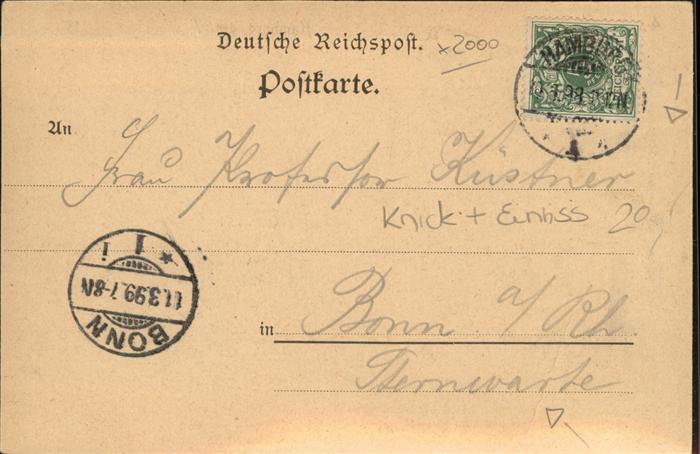 Deutsche Reichspost.
x2000
Postkarte.
HAMBURG
1
An
Frau Professor Küstner
Knick + Einriss 20
in Bonn a/Rh.
Sternwarte
BONN
11.3.99.7-8N
1 i